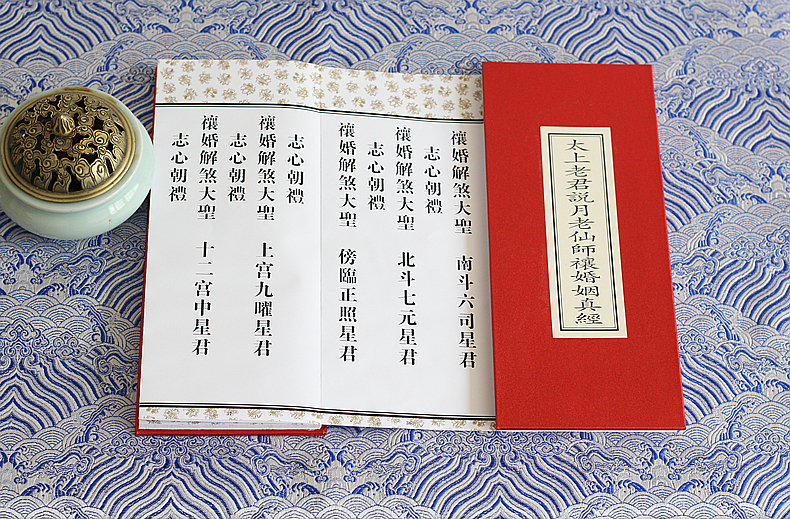 太上老君説月老仙師禳婚姻真經
禳婚解煞大聖　南斗六司星君
志心朝禮
禳婚解煞大聖　北斗七元星君
志心朝禮
禳婚解煞大聖　傍臨正照星君
志心朝禮
禳婚解煞大聖　上宫九曜星君
志心朝禮
禳婚解煞大聖　十二宫中星君
志心朝禮